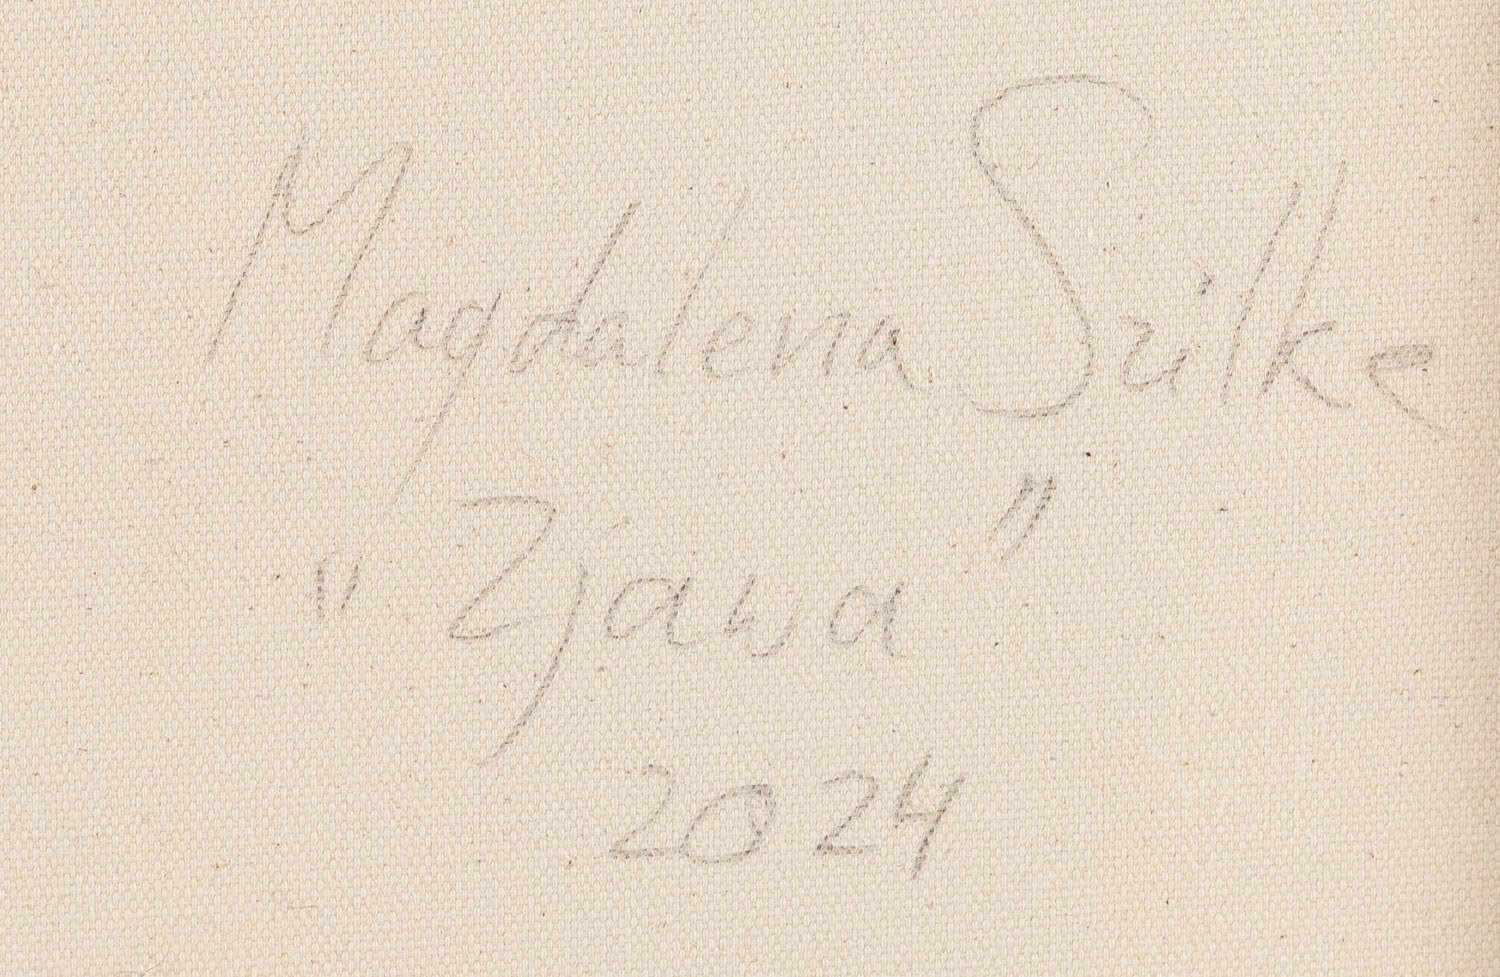 Magdalena Szilke
"Zjawa"
2024